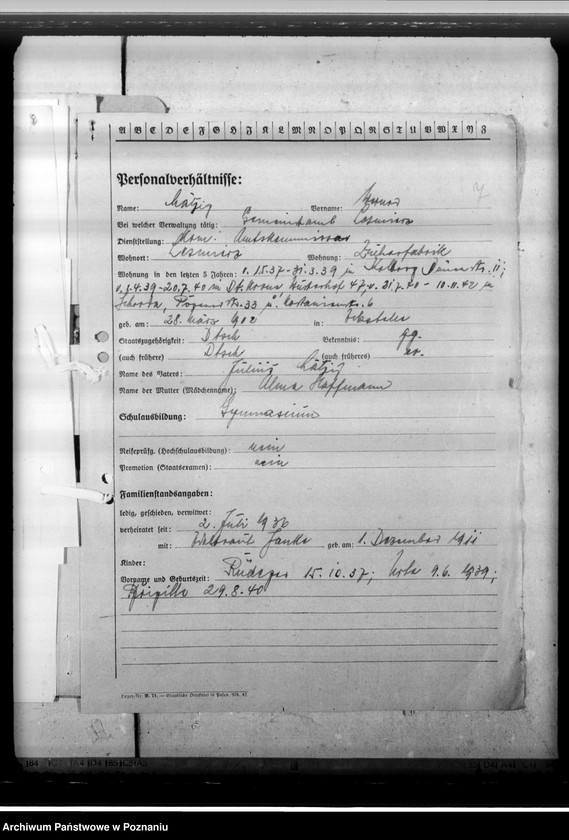 8
A B C D E F G H I K L M N O P Q R S T U V W X Y Z
7
Personalverhältnisse:
Name: Mätzig Vorname: Werner
Bei welcher Verwaltung tätig:
Dienststellung: Kom. Amtskommissar
Wohnort: Wohnung: Zieherfabrik
Wohnung in den letzten 5 Jahren: 1.5.37-31.3.39 in Kolberg 11;
1.4.39-20.7.40 in Dt. Krone 47, v. 21.7.40 - 10.11.42 in
Schroda, Posener Str. 33 u. 6
geb. am: 28. März 902 in:
Staatszugehörigkeit: Dtsch Bekenntnis: gg.
(auch frühere) Dtsch (auch früheres) ev.
Name des Vaters: Julius Mätzig
Name der Mutter (Mädchenname): Alma Hoffmann
Schulausbildung: Gymnasium
Reifeprüfg. (Hochschulausbildung): nein
Promotion (Staatsexamen): nein
Familienstandsangaben:
ledig, geschieden, verwitwet:
verheiratet seit: 2. Juli 1936
mit: Waltraut Janke geb. am: 1. Dezember 1911
Kinder:
Vorname und Geburtszeit: Rüdeger 15.10.37; 9.6.1939;
Brigitte 29.8.40
Archiwum Państwowe w Poznaniu